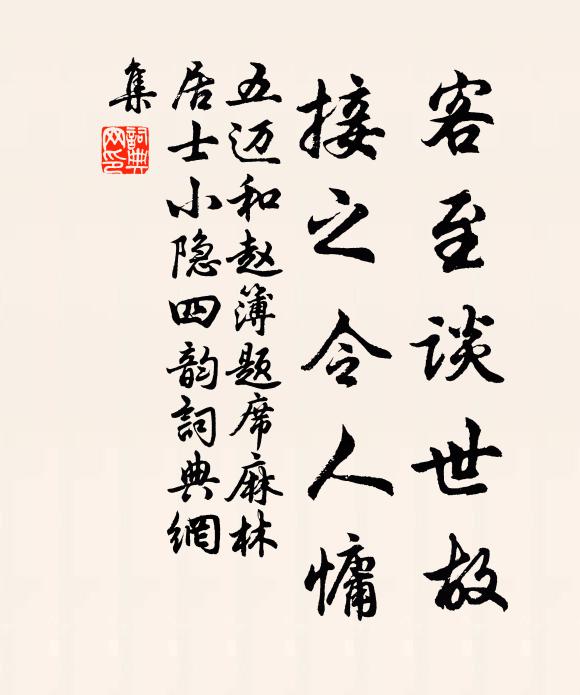 客至談世故
接之令人慵
五迈和赵簿题席麻林
居士小隐四韵詞典網
集
詞典網印